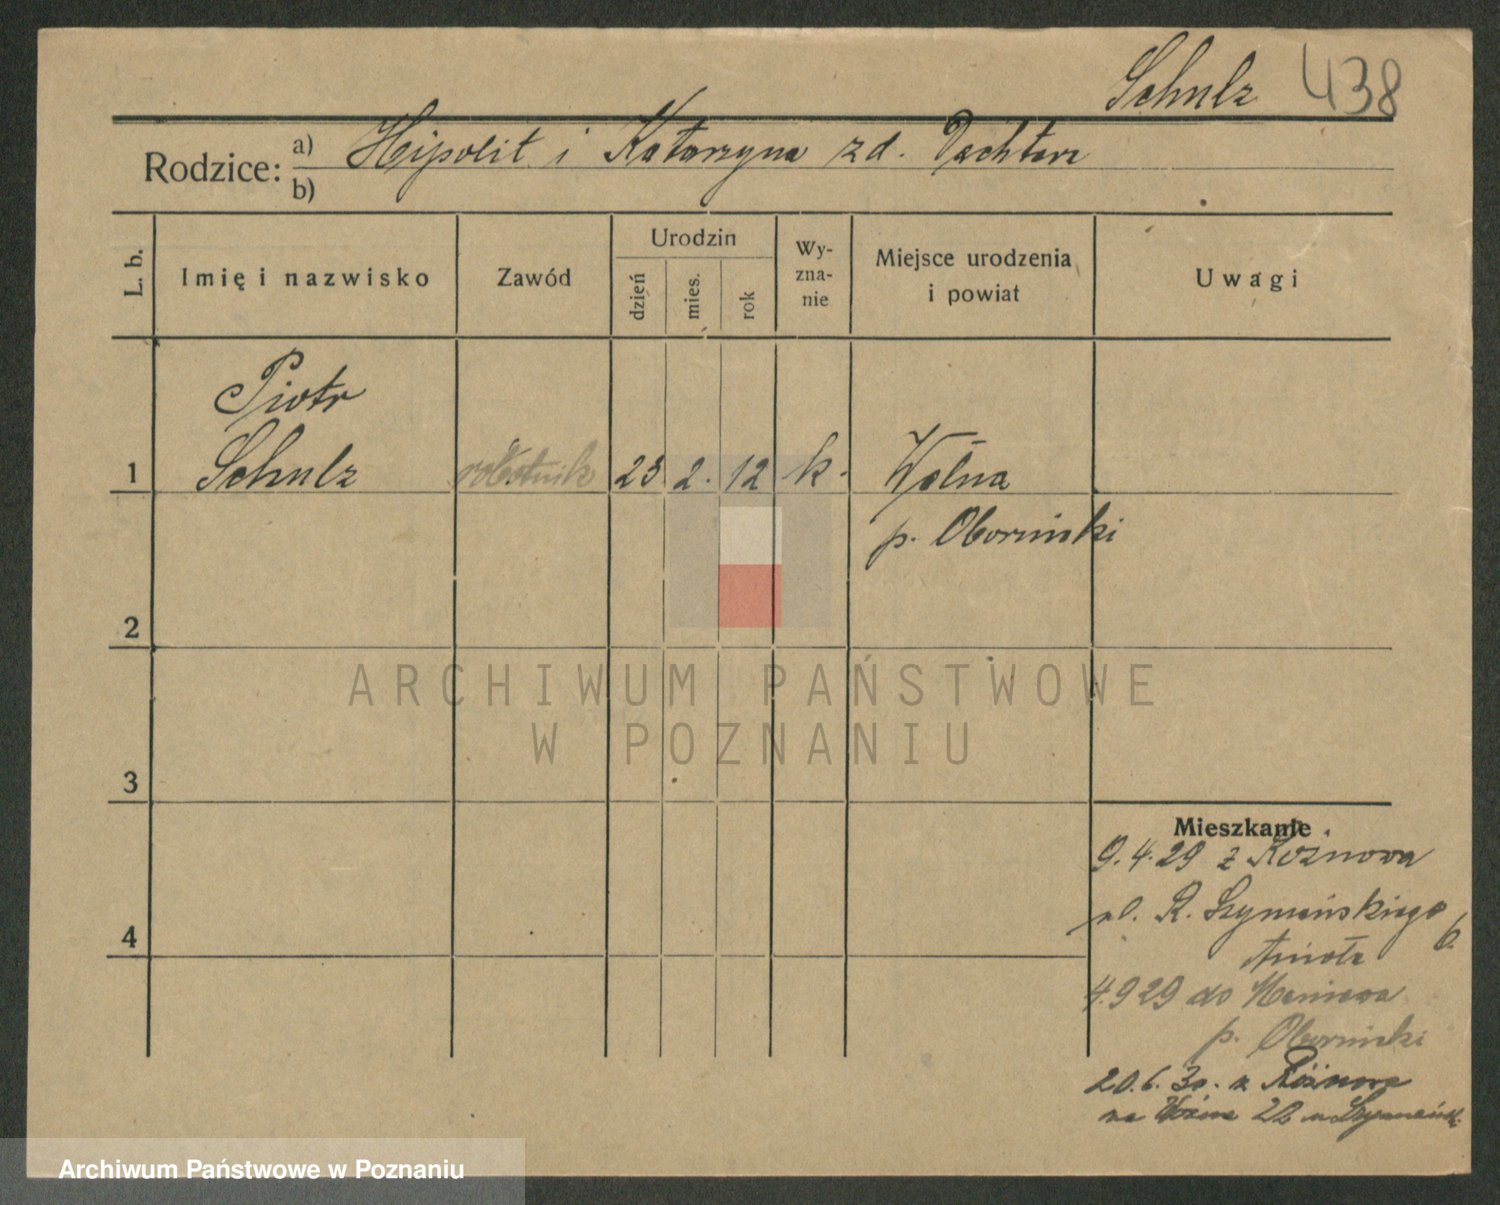 Schulz 438
Rodzice: a) Hipolit i Katarzyna zd. Dachtera
b)
L. b. Imię i nazwisko Zawód Urodzin dzień mies. rok Wy-zna-nie Miejsce urodzenia i powiat Uwagi
Piotr
1 Schulz robotnik 23 2. 12 k. Wełna
p. Obornicki
2
ARCHIWUM PAŃSTWOWE
W POZNANIU
3
Mieszkanie
9.4.29 z Rożnowa
ul. R. Szymańskiego 6
4
4.9 29 do
p. Obornicki
20.6.30. z Rożnowa
na Woźna
Archiwum Państwowe w Poznaniu